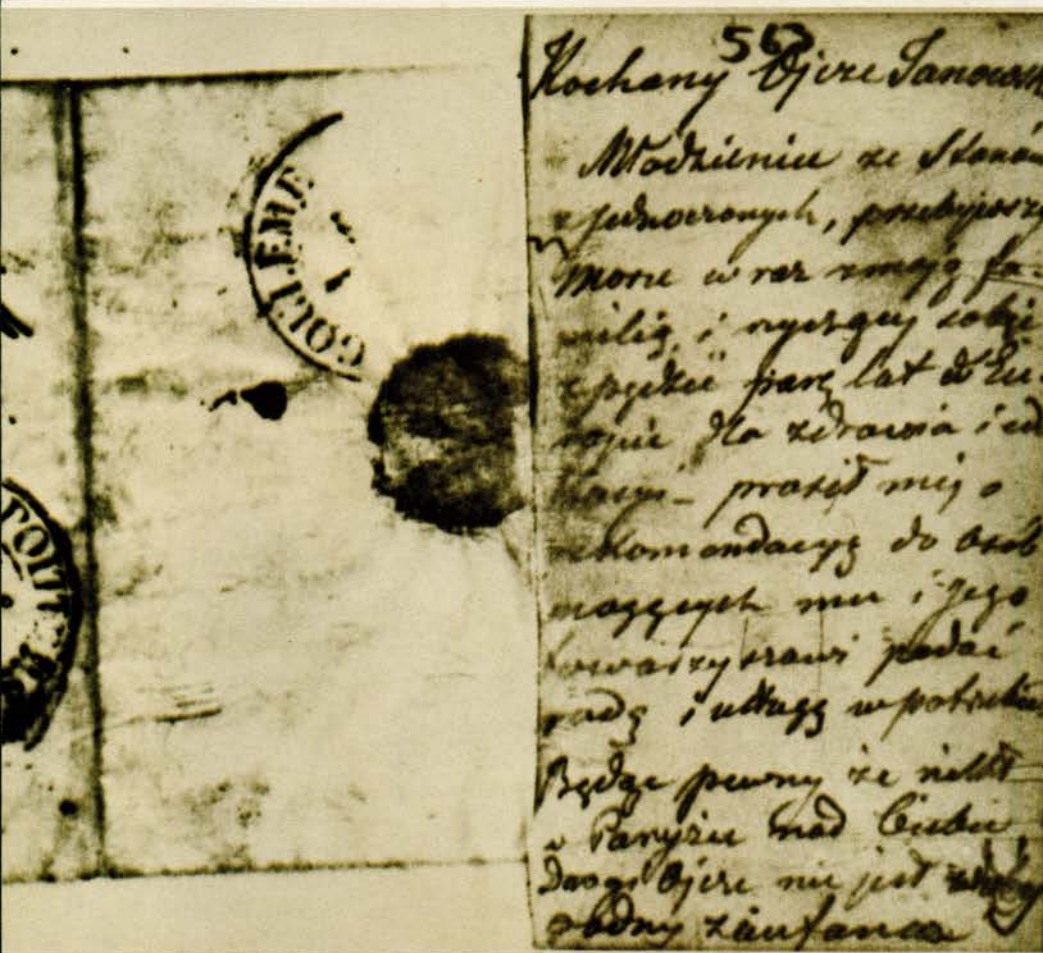 COLLEME
563
Kochany Ojcze Janows
Młodzieniec ze Stanów
zjednoczonych, przebywszy
morze wraz z moją fa-
milią, i życzący sobie
spędzić parę lat w Eu-
ropie dla zdrowia i ed
prosił mię o
rekomendacyę do osób
mogących mu i jego
towarzyszowi podać
radę i usługę w potrzebie
Będąc pewny że nikt
w Paryżu nad Ciebie
Drogi Ojcze nie jest
godny zaufania